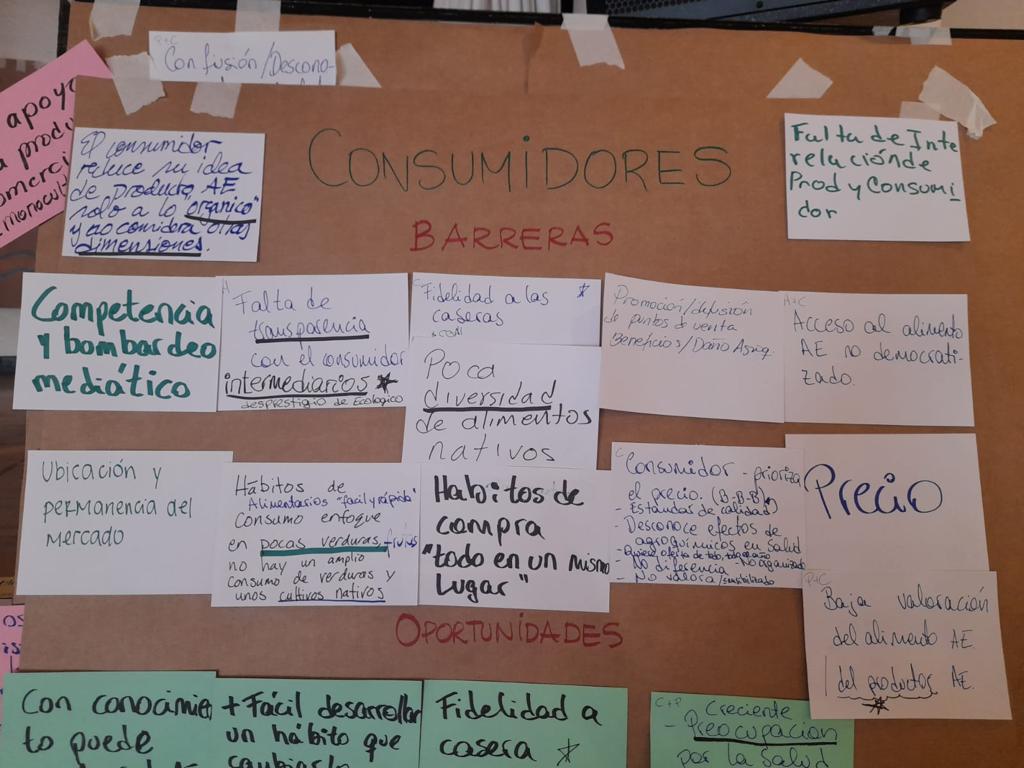 P+C
Confusión/Descono-
apoyo
a produ
omerci
monocult
El consumidor
reduce su idea
de producto AE
solo a lo "organico"
y no considera otras
dimensiones.
CONSUMIDORES
BARRERAS
Falta de Inte
relación de
Prod y Consumi
dor
Competencia
y bombardeo
mediático
A
Falta de
transparencia
con el consumidor
intermediarios
desprestigio de Ecológico
C
Fidelidad a las
caseras
Poca
diversidad
de alimentos
nativos
Promoción/difusión
de puntos d venta
Beneficios/Daño
A+C
Acceso al alimento
AE no democrati-
zado.
Ubicación y
permanencia del
mercado
Hábitos de
Alimentarios "facil y rápido"
Consumo enfoque
en pocas verduras, frutas
no hay un amplio
consumo de verduras y
unos cultivos nativos
Habitos de
compra
"todo en un mismo
Lugar"
C
Consumidor - prioriza
el precio. (B-B-B)
- Estándar de calidad
- Desconoce efectos de
agroquímicos en salud
- No diferencia - No organizado
- No valora/sensibilizado
Precio
P+C
Baja valoración
del alimento AE
del productor AE.
OPORTUNIDADES
os
Con conocimien
to puede
+ Fácil desarrollar
un hábito que
cambiarlo
Fidelidad a
casera
C+P
Creciente
- Preocupación
por la salud